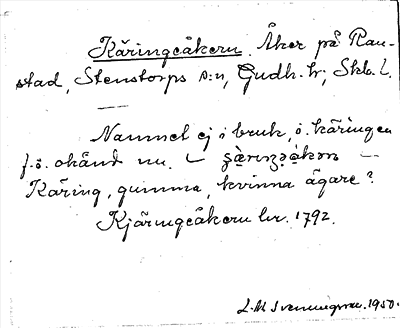 Käringeåkern. Åker på Rau-
stad, Stenstorps s:n, Gudh. hr; Skb. l.
Namnet ej i bruk, o. käringen
f. ö. okänd nu. –
Käring, gumma, kvinna ägare?
Kjäringeåkern hr. 1792.
L. M. Svenningsson. 1950.